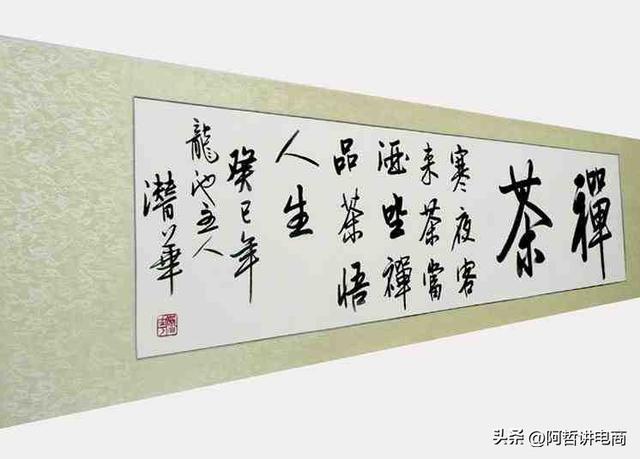 禪茶
寒夜客
来茶當
酒坐禪
品茶悟
人生
癸巳年
龍池主人
潛華
头条 @阿哲讲电商